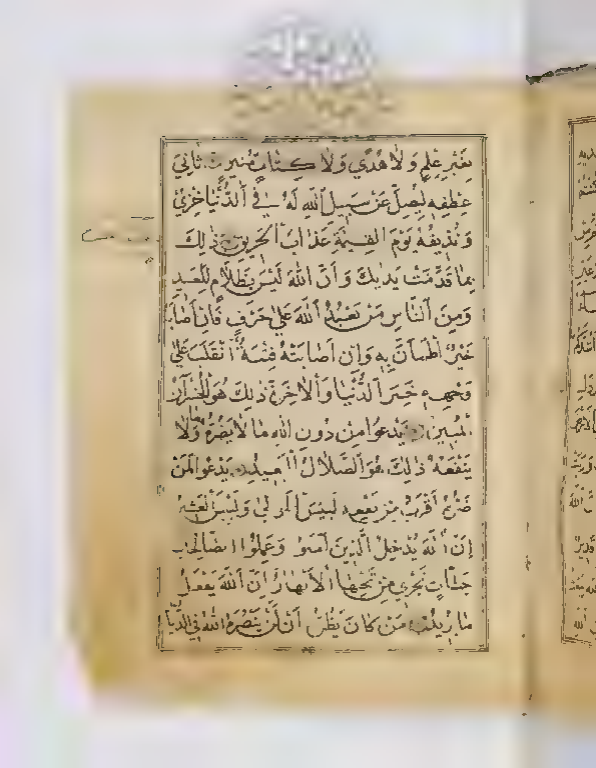 بِغَيْرِ عِلْمٍ وَلَا هُدًى وَلَا كِتَابٍ مُنِيرٍ ثَانِيَ
عِطْفِهِ لِيُضِلَّ عَنْ سَبِيلِ اللهِ لَهُ فِي الدُّنْيَا خِزْيٌ
وَنُذِيقُهُ يَوْمَ الْقِيٰمَةِ عَذَابَ الْحَرِيقِ ذٰلِكَ
بِمَا قَدَّمَتْ يَدٰكَ وَاَنَّ اللهَ لَيْسَ بِظَلَّامٍ لِلْعَبِيدِ
وَمِنَ النَّاسِ مَنْ يَعْبُدُ اللهَ عَلٰى حَرْفٍ فَاِنْ اَصَابَهُ
خَيْرٌ اطْمَاَنَّ بِهِ وَاِنْ اَصَابَتْهُ فِتْنَةٌ انْقَلَبَ عَلٰى
وَجْهِهِ خَسِرَ الدُّنْيَا وَالْاٰخِرَةَ ذٰلِكَ هُوَ الْخُسْرَانُ
الْمُبِينُ يَدْعُوا مِنْ دُونِ اللهِ مَا لَا يَضُرُّهُ وَمَا لَا
يَنْفَعُهُ ذٰلِكَ هُوَ الضَّلَالُ الْبَعِيدُ يَدْعُوا لَمَنْ
ضَرُّهُ اَقْرَبُ مِنْ نَفْعِهِ لَبِئْسَ الْمَوْلٰى وَلَبِئْسَ الْعَشِيرُ
اِنَّ اللهَ يُدْخِلُ الَّذِينَ اٰمَنُوا وَعَمِلُوا الصَّالِحَاتِ
جَنَّاتٍ تَجْرِي مِنْ تَحْتِهَا الْاَنْهَارُ اِنَّ اللهَ يَفْعَلُ
مَا يُرِيدُ مَنْ كَانَ يَظُنُّ اَنْ لَنْ يَنْصُرَهُ اللهُ فِي الدُّنْيَا